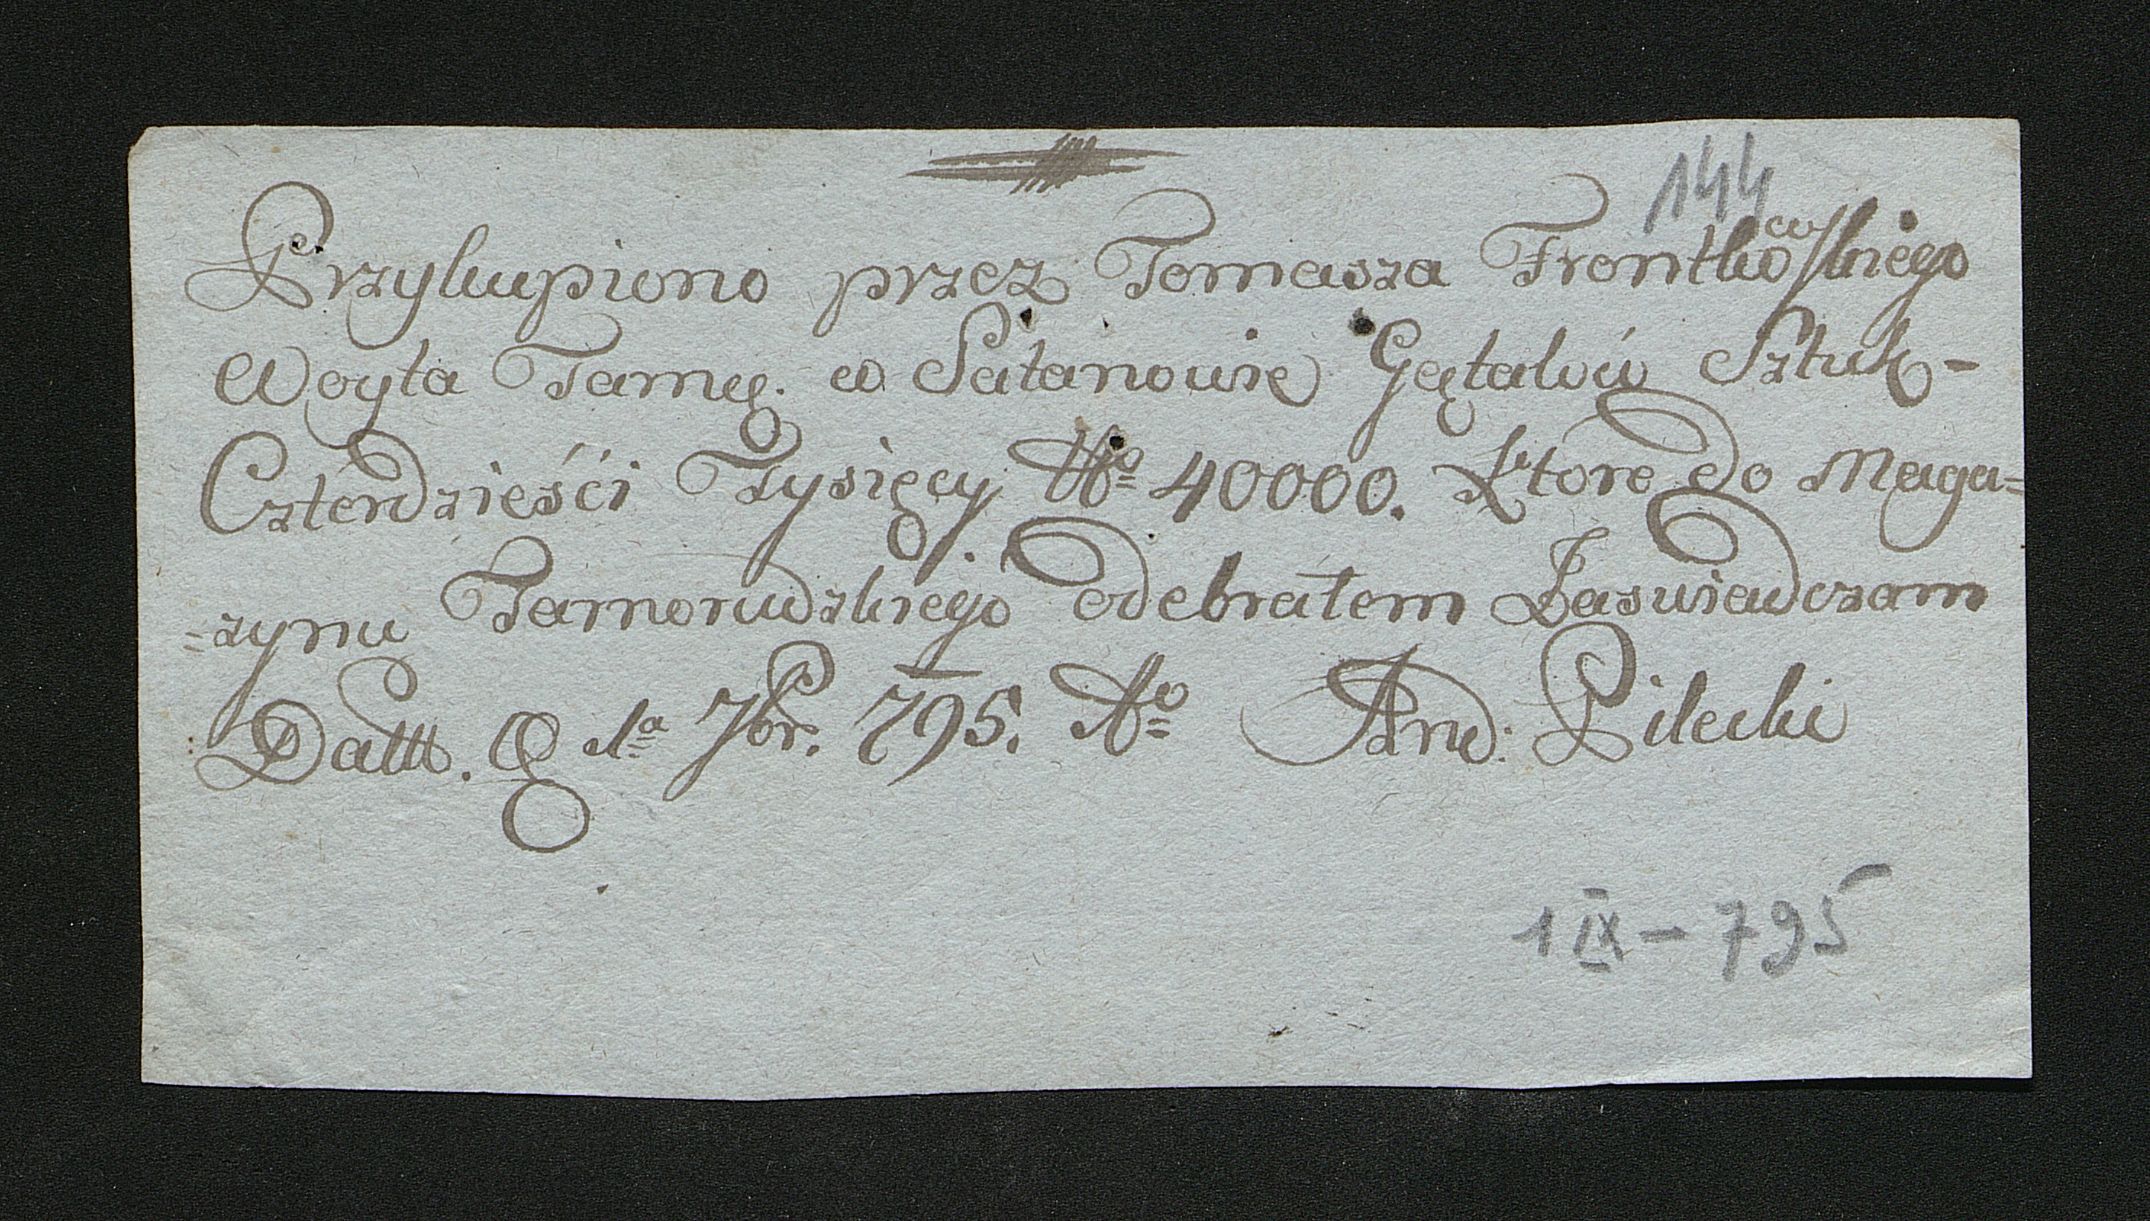 144
Przykupiono przez Tomasza Frontkowskiego
Woyta Tarnę. w Satanowie Gętalów Sztuk-
Czterdzieści Tysięcy No 40000. Które do Maga=
=zynu Tarnorudzkiego odebrałem Zaświadczam
Datt. 1a 7br. 795. Ao And: Pilecki
1 IX - 795